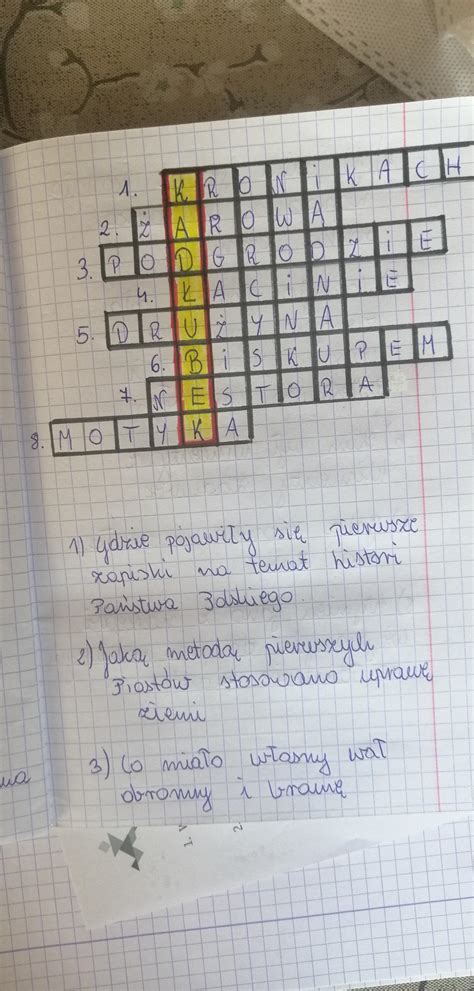 1. KRONIKACH
2. ŻAROWA
3. PODGRODZIE
4. ŁACINIE
5. DRUŻYNA
6. BISKUPEM
7. NESTORA
8. MOTYKA
1) Gdzie pojawiły się pierwsze
zapiski na temat histori
Państwa Polskiego.
2) Jaką metodą pierwszych
Piastów stosowano uprawę
ziemi
3) Co miało własny wał
obronny i bramę
wa
1.
2.